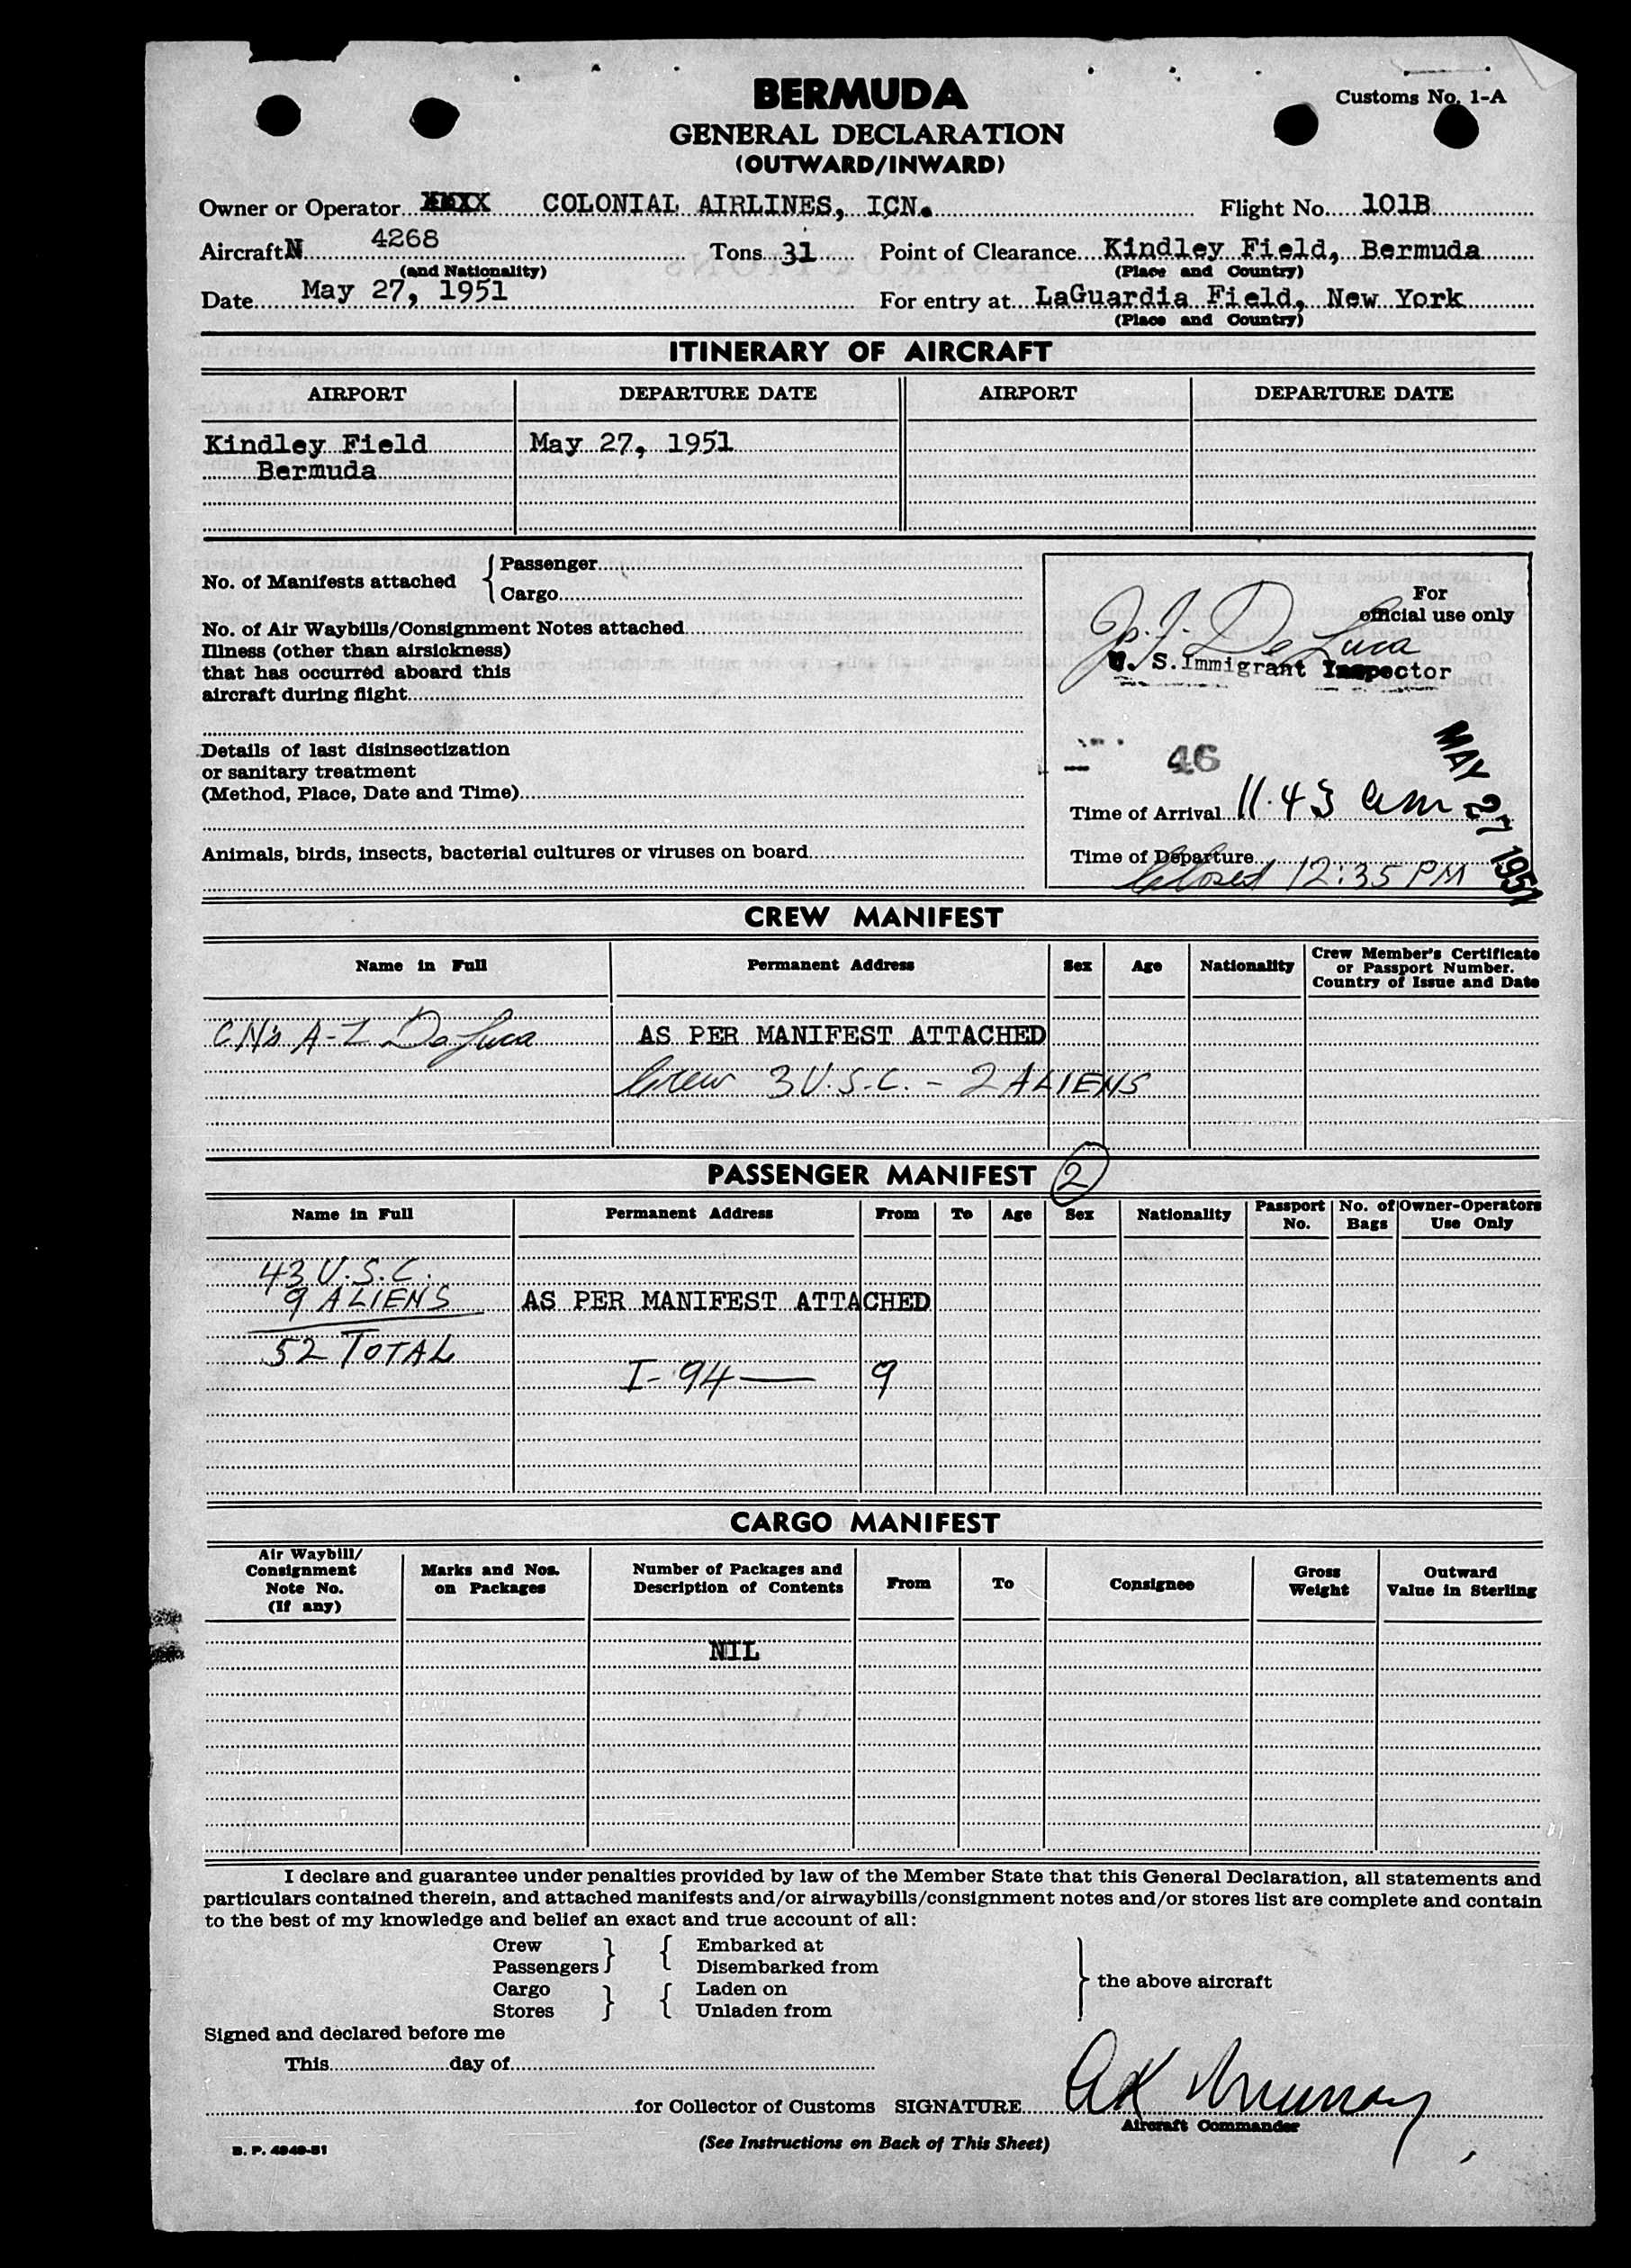 BERMUDA
Customs No. 1-A
GENERAL DECLARATION
(OUTWARD/INWARD)
Owner or Operator XXXX COLONIAL AIRLINES, ICN. Flight No. 101B
Aircraft N 4268 Tons 31 Point of Clearance Kindley Field, Bermuda
(and Nationality) (Place and Country)
Date May 27, 1951 For entry at LaGuardia Field, New York
(Place and Country)
ITINERARY OF AIRCRAFT
AIRPORT DEPARTURE DATE AIRPORT DEPARTURE DATE
Kindley Field May 27, 1951
Bermuda
No. of Manifests attached { Passenger
Cargo
No. of Air Waybills/Consignment Notes attached
Illness (other than airsickness)
that has occurred aboard this
aircraft during flight
Details of last disinsectization
or sanitary treatment
(Method, Place, Date and Time)
Animals, birds, insects, bacterial cultures or viruses on board
For
official use only
De Luca
U. S. Immigrant Inspector
46
MAY 27 1951
Time of Arrival 11.43 am
Time of Departure
Closed 12:35 PM
CREW MANIFEST
Name in Full Permanent Address Sex Age Nationality Crew Member's Certificate
or Passport Number.
Country of Issue and Date
CN's A-Z DeLuca AS PER MANIFEST ATTACHED
Crew 3 U.S.C. - 2 ALIENS
PASSENGER MANIFEST 2
Name in Full Permanent Address From To Age Sex Nationality Passport No. No. of Bags Owner-Operators Use Only
43 U.S.C.
9 ALIENS AS PER MANIFEST ATTACHED
52 TOTAL
I-94 — 9
CARGO MANIFEST
Air Waybill/
Consignment
Note No.
(If any)
Marks and Nos.
on Packages
Number of Packages and
Description of Contents
From To Consignee
Gross
Weight
Outward
Value in Sterling
NIL
I declare and guarantee under penalties provided by law of the Member State that this General Declaration, all statements and
particulars contained therein, and attached manifests and/or airwaybills/consignment notes and/or stores list are complete and contain
to the best of my knowledge and belief an exact and true account of all:
Crew Embarked at
Passengers } { Disembarked from
Cargo Laden on } the above aircraft
Stores } { Unladen from
Signed and declared before me
This day of
for Collector of Customs SIGNATURE AK Murray
Aircraft Commander
B. P. 4949-51
(See Instructions on Back of This Sheet)